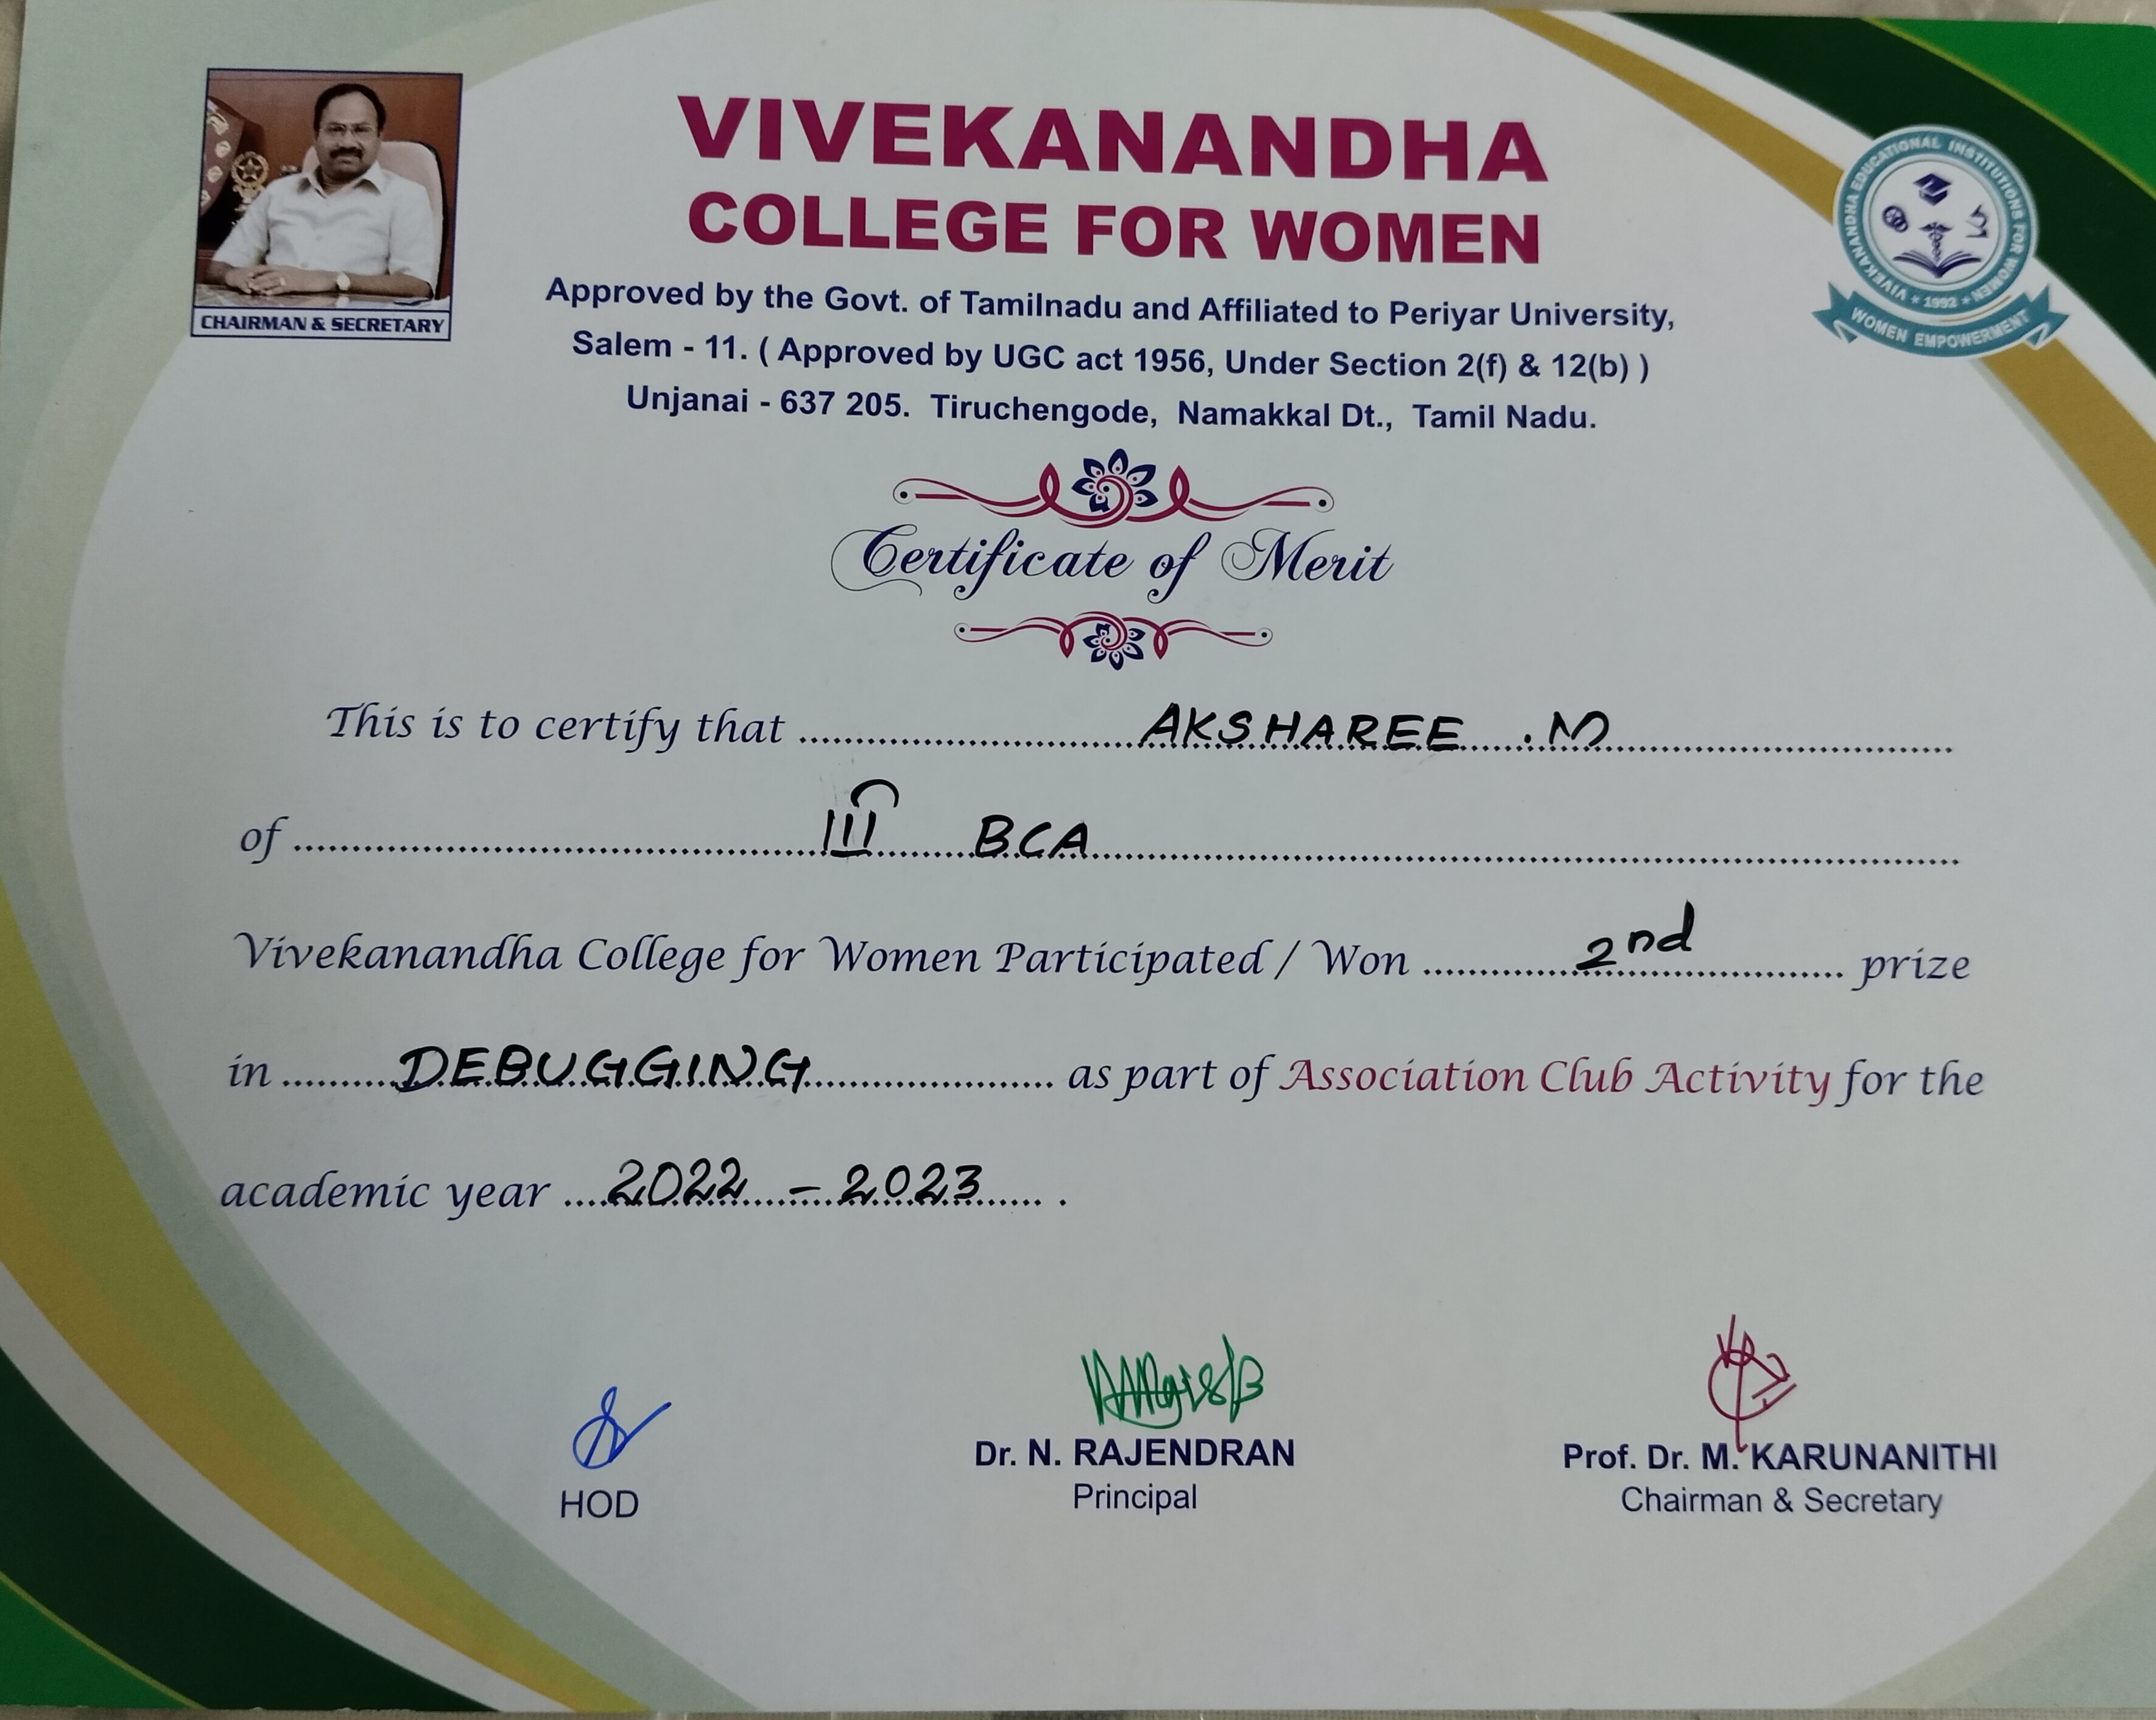 VIVEKANANDHA
COLLEGE FOR WOMEN
Approved by the Govt. of Tamilnadu and Affiliated to Periyar University,
Salem - 11. ( Approved by UGC act 1956, Under Section 2(f) & 12(b) )
Unjanai - 637 205. Tiruchengode, Namakkal Dt., Tamil Nadu.
CHAIRMAN & SECRETARY
VIVEKANANDHA EDUCATIONAL INSTITUTIONS FOR WOMEN
* 1992 *
WOMEN EMPOWERMENT
Certificate of Merit
This is to certify that ........ AKSHAREE .M ........
of ........ III BCA ........
Vivekanandha College for Women Participated / Won ........ 2nd ........ prize
in ........ DEBUGGING ........ as part of Association Club Activity for the
academic year .... 2022 - 2023 ...... .
HOD
Dr. N. RAJENDRAN
Principal
Prof. Dr. M. KARUNANITHI
Chairman & Secretary